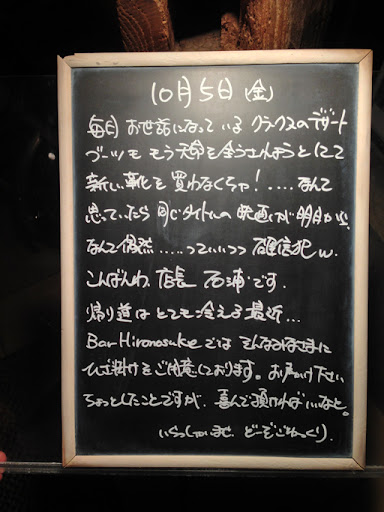 10月5日(金)
毎日お世話になっているクラークスのデザート
ブーツももう天命を全うされようとしてて
新しい靴を買わなくちゃ!.....なんて
思っていたら同じタイトルの映画が明日から!
なんて偶然.....っていいつつ確信犯w.
こんばんわ.店長 石浦です.
帰り道はとても冷える最近...
Bar Hironosukeではそんなお客さまに
ひざ掛けをご用意しております。お声かけ下さい
ちょっとしたことですが、喜んで頂ければいいなと。
いらっしゃいませ.どーぞごゆっくり.